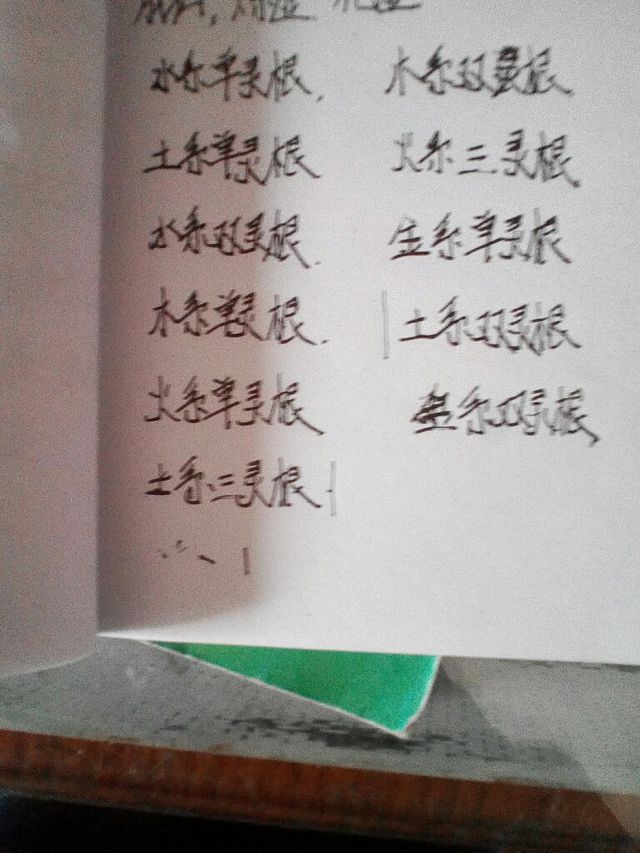 水系单灵根. 木系双灵根
土系单灵根 火系三灵根
水系双灵根. 金系单灵根
木系单灵根. 土系双灵根
火系单灵根、 金系双灵根、
土系三灵根.